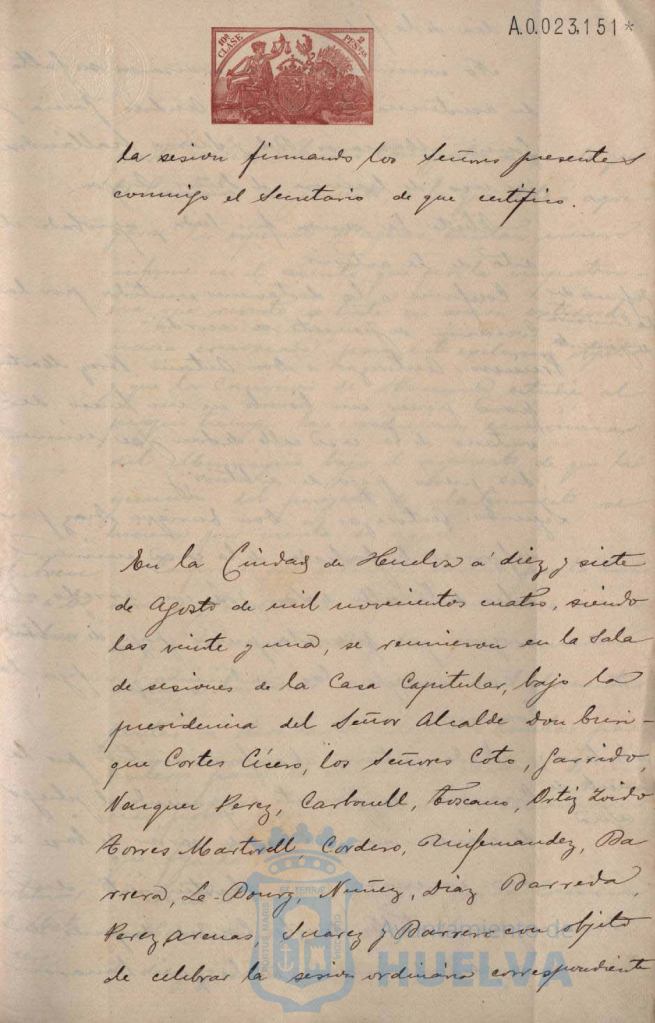 A.0.023,151*
10ª CLASE 2 PESETAS
la sesion firmando los Señores presentes
conmigo el Secretario de que certifico.
En la Ciudad de Huelva á diez y siete
de Agosto de mil novecientos cuatro, siendo
las veinte y una, se reunieron en la Sala
de sesiones de la Casa Capitular, bajo la
presidencia del Señor Alcalde Don Enri-
que Cortes Cícero, los Señores Coto, Garrido,
Vazquez Perez, Carbonell, Toscano, Ortiz Zoido
Torres Martorell, Cordero, Ruifernandez, Ba
rrera, Le-Bourg, Nuñez, Diaz Barreda,
Perez Arenas, Suarez y Barrero con objeto
de celebrar la sesion ordinaria correspondiente
Ayuntamiento de
HUELVA